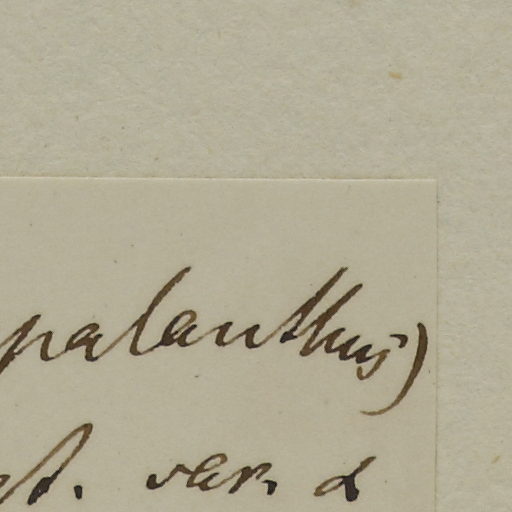 palanthus)
st. var. α